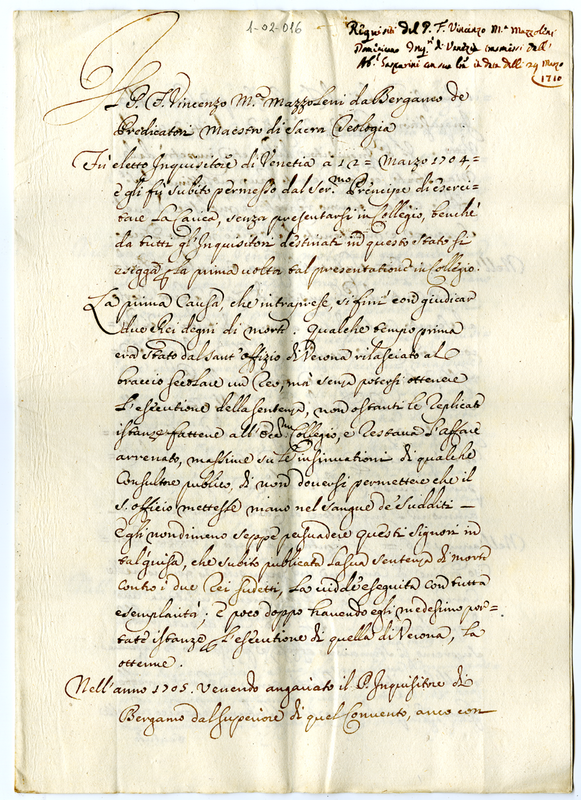 1-02-016
Requisiti del P. F. Vincenzo M.a Mazzoleni
Domenicano Inq.r di Venezia trasmessi dall'
Ab. Gasparini con sua in data dell' 29 Marzo
1710
Il P. F. Vincenzo M.a Mazzoleni da Bergamo de
Predicatori Maestro di Sacra Teologia
Fù eletto Inquisitore di Venetia a 12 = Marzo 1704 =
e gli fù subito permesso dal Ser.mo Principe di eserci-
tare la Carica, senza presentarsi in Collegio, benche
da tutti gl'Inquisitori destinati in questo Stato si
esigga la prima volta tal presentatione in Collegio.
La prima Causa, che intraprese, si finì con giudicar
due Rei degni di morte. Qualche tempo prima
era stato dal Sant'offizio di Verona rilasciato al
braccio secolare un Reo, mà senza potersi ottenere
l'esecutione della sentenza, non ostanti le replicate
istanze fattene all' Collegio, e restava l'affare
arrenato, massime sù le insinuationi di qualche
Consultore publico, di non doversi permettere che il
S. officio mettesse mano nel sangue de Sudditi —
Egli nondimeno seppe persuadere questi Signori in
tal guisa, che subito publicata la sua sentenza di morte
contro i due Rei sudetti, la vidde eseguita con tutta
esemplarità; E poco doppo havendo egli medesimo por-
tate istanze l'esecutione di quella di Verona, la
ottenne.
Nell'anno 1705. Venendo angariato il P. Inquisitore di
Bergamo dal Superiore di quel Convento, anco con